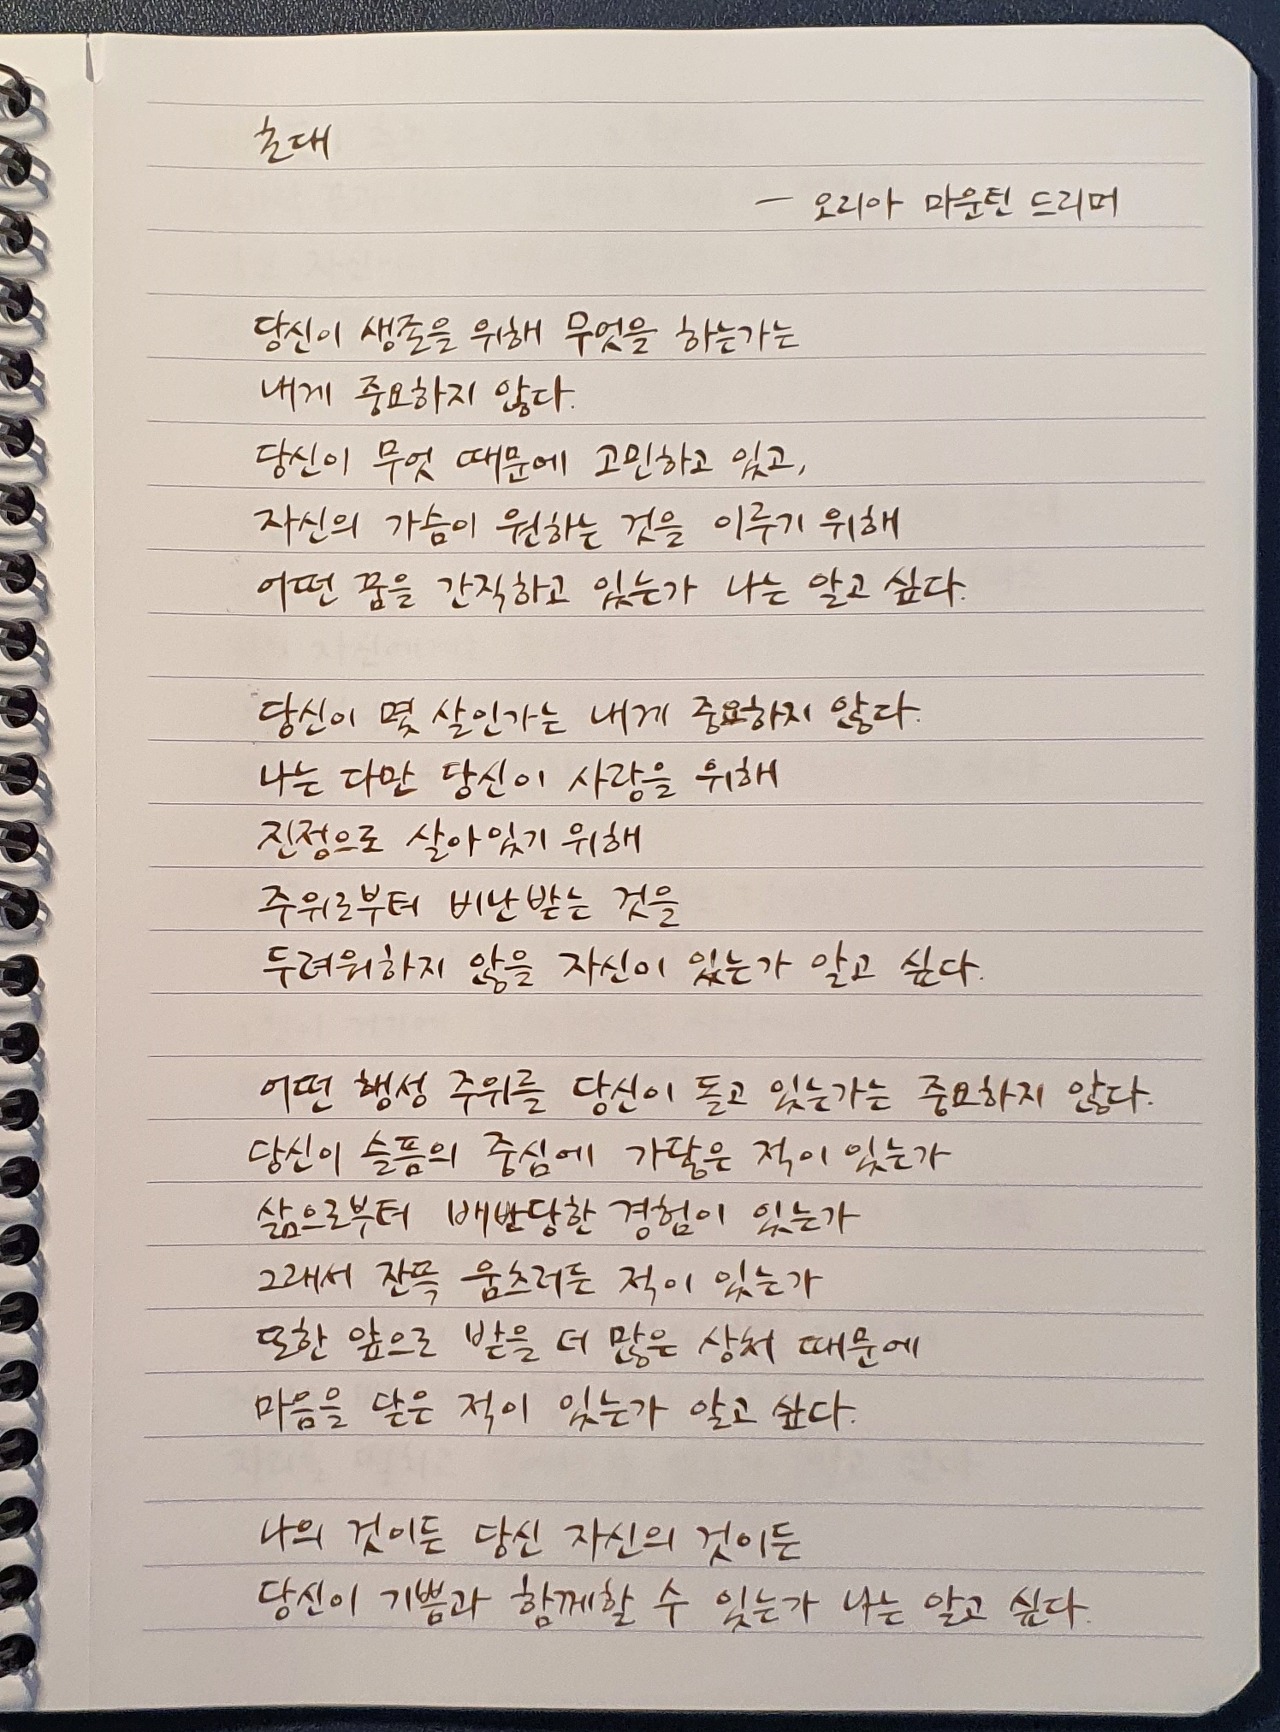 초대
— 오리아 마운틴 드리머
당신이 생존을 위해 무엇을 하는가는
내게 중요하지 않다.
당신이 무엇 때문에 고민하고 있고,
자신의 가슴이 원하는 것을 이루기 위해
어떤 꿈을 간직하고 있는가 나는 알고 싶다.
당신이 몇 살인가는 내게 중요하지 않다.
나는 다만 당신이 사랑을 위해
진정으로 살아있기 위해
주위로부터 비난받는 것을
두려워하지 않을 자신이 있는가 알고 싶다.
어떤 행성 주위를 당신이 돌고 있는가는 중요하지 않다.
당신이 슬픔의 중심에 가닿은 적이 있는가
삶으로부터 배반당한 경험이 있는가
그래서 잔뜩 움츠러든 적이 있는가
또한 앞으로 받을 더 많은 상처 때문에
마음을 닫은 적이 있는가 알고 싶다.
나의 것이든 당신 자신의 것이든
당신이 기쁨과 함께할 수 있는가 나는 알고 싶다.